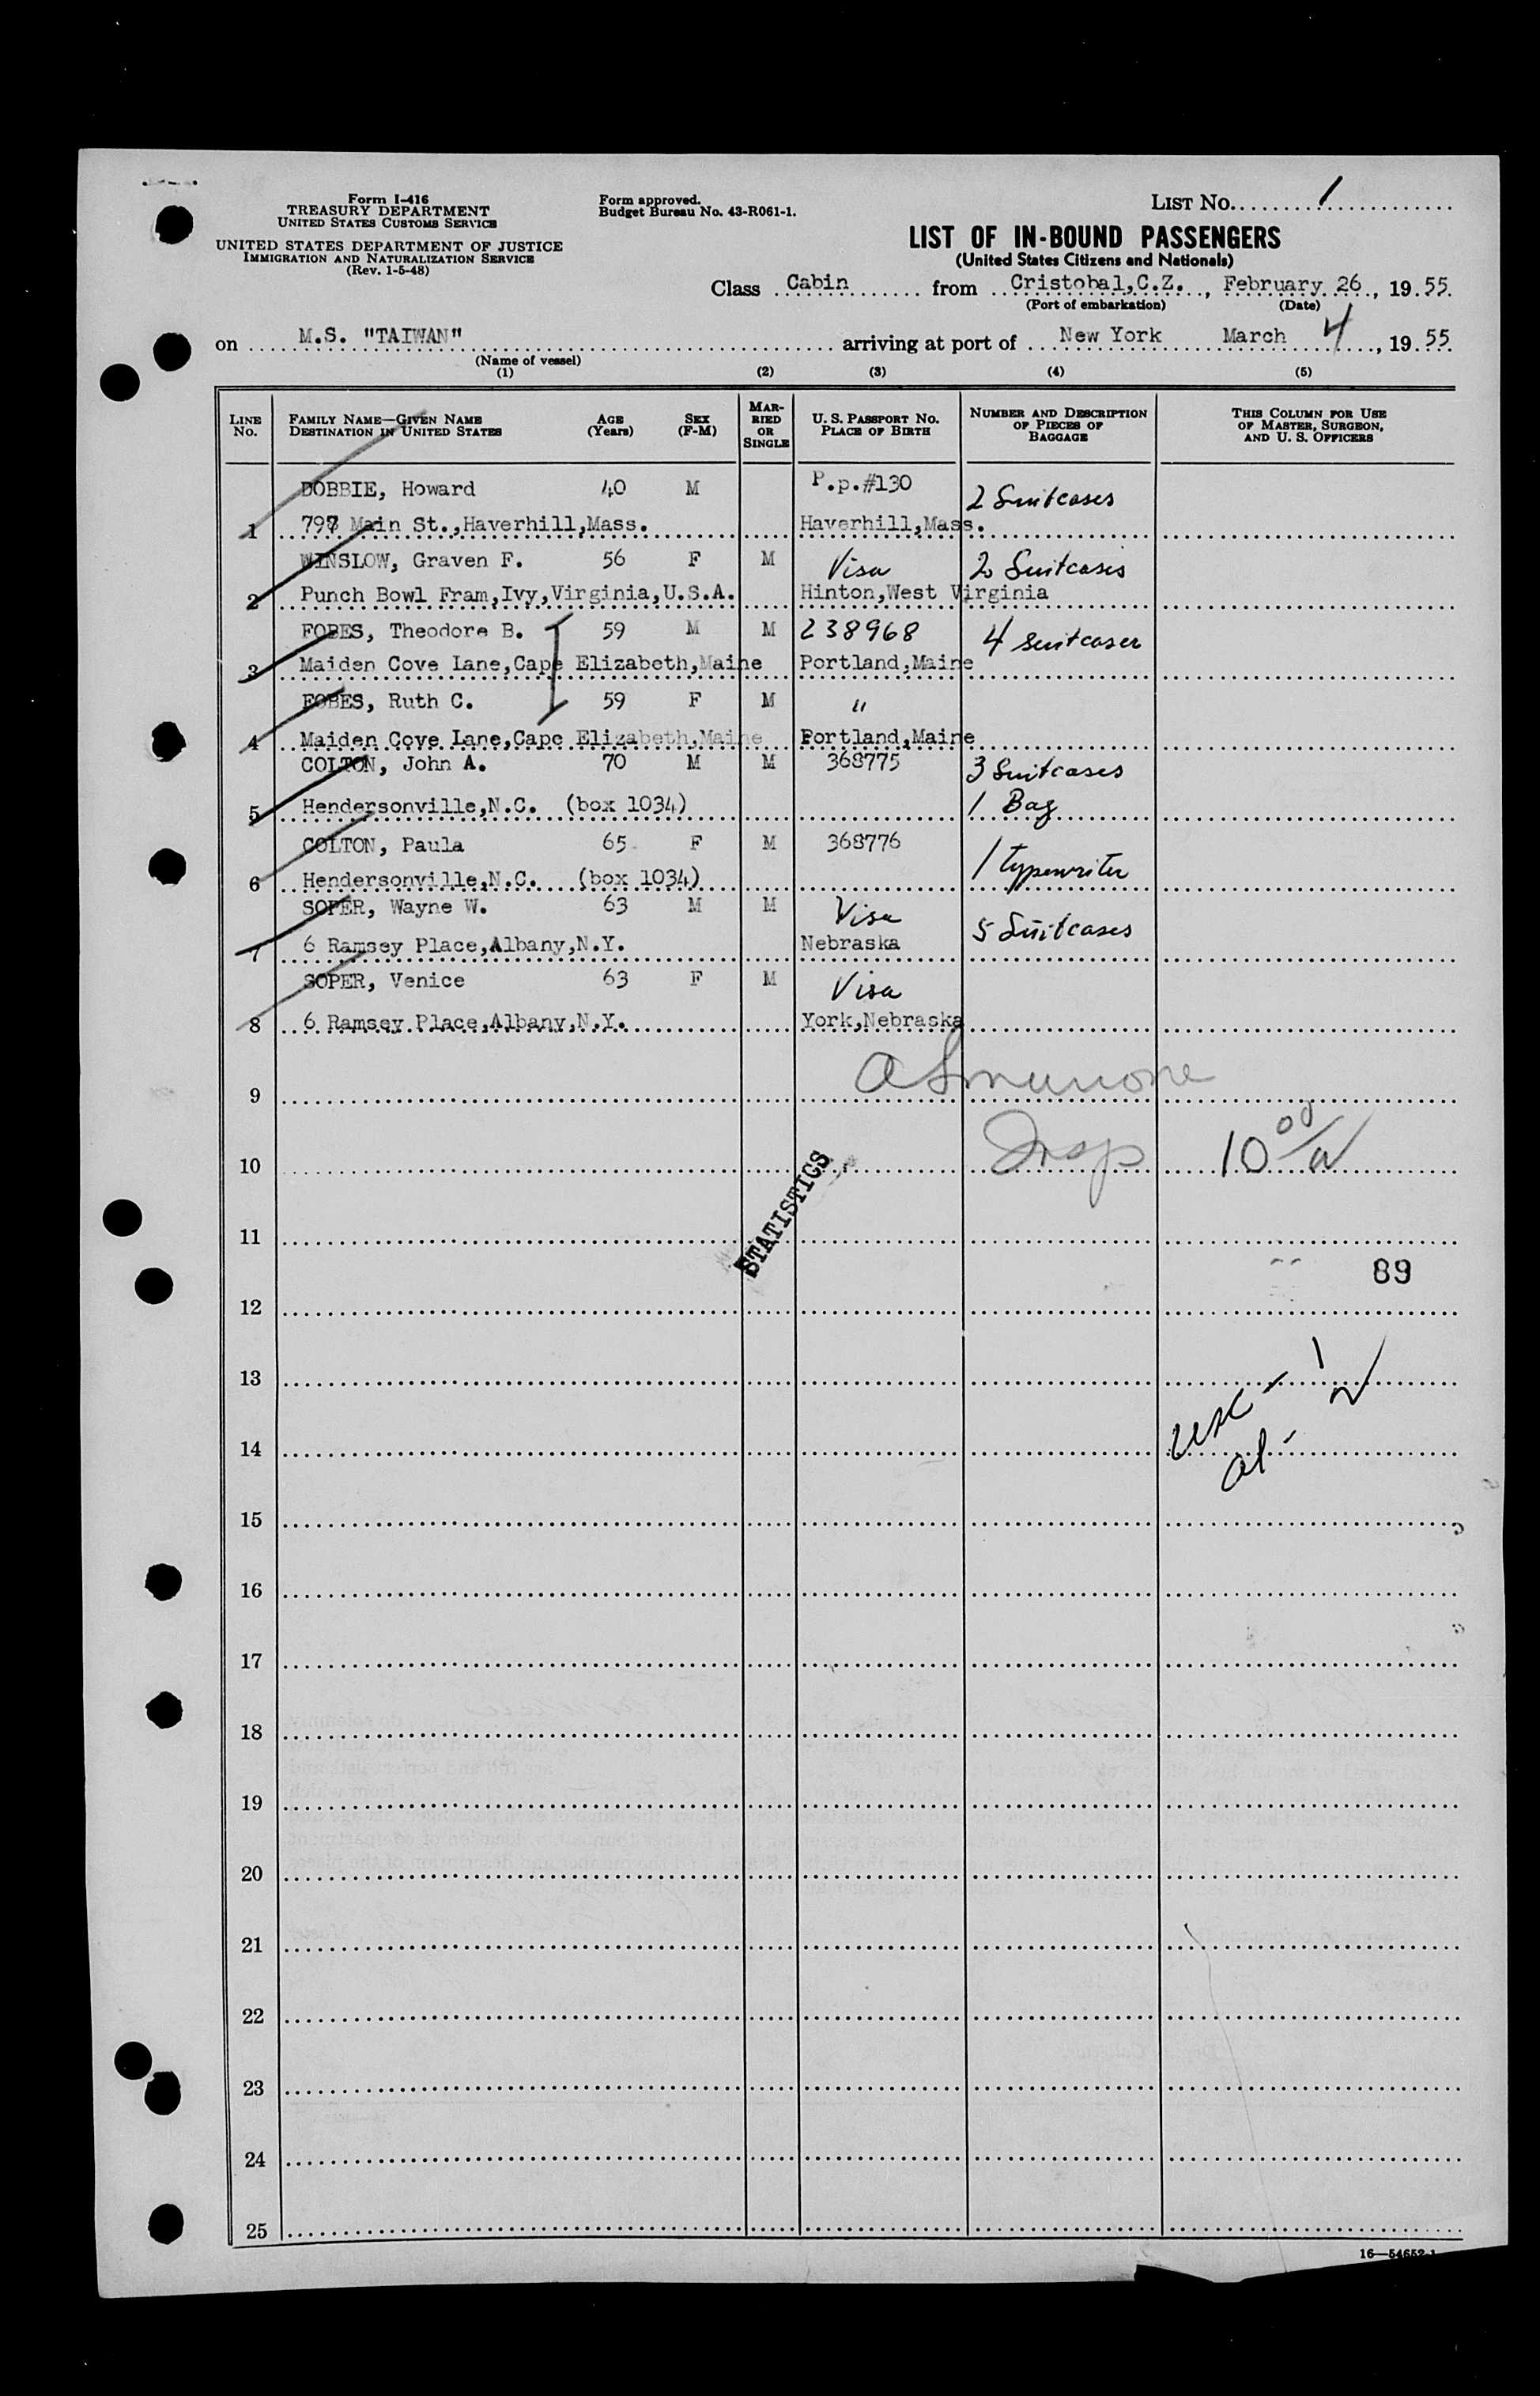 Form I-416
TREASURY DEPARTMENT
UNITED STATES CUSTOMS SERVICE
UNITED STATES DEPARTMENT OF JUSTICE
IMMIGRATION AND NATURALIZATION SERVICE
(Rev. 1-5-48)
Form approved.
Budget Bureau No. 43-R061-1.
LIST No. 1
LIST OF IN-BOUND PASSENGERS
(United States Citizens and Nationals)
Class Cabin from Cristobal,C.Z., February 26, 1955
(Port of embarkation) (Date)
on M.S. "TAIWAN" arriving at port of New York March 4, 1955
(Name of vessel)
(1) (2) (3) (4) (5)
LINE No. FAMILY NAME—GIVEN NAME DESTINATION IN UNITED STATES AGE (Years) SEX (F-M) MARRIED OR SINGLE U. S. PASSPORT NO. PLACE OF BIRTH NUMBER AND DESCRIPTION OF PIECES OF BAGGAGE THIS COLUMN FOR USE OF MASTER, SURGEON, AND U. S. OFFICERS
DOBBIE, Howard 40 M P.p.#130 2 Suitcases
1 797 Main St.,Haverhill,Mass. Haverhill,Mass.
WINSLOW, Graven F. 56 F M Visa 2 Suitcases
2 Punch Bowl Fram,Ivy,Virginia,U.S.A. Hinton,West Virginia
FOBES, Theodore B. 59 M M 238968 4 suitcases
3 Maiden Cove Lane,Cape Elizabeth,Maine Portland,Maine
FOBES, Ruth C. 59 F M "
4 Maiden Cove Lane,Cape Elizabeth,Maine Portland,Maine
COLTON, John A. 70 M M 368775 3 Suitcases
5 Hendersonville,N.C. (box 1034) 1 Bag
COLTON, Paula 65 F M 368776 1 typewriter
6 Hendersonville,N.C. (box 1034)
SOPER, Wayne W. 63 M M Visa 5 Suitcases
7 6 Ramsey Place,Albany,N.Y. Nebraska
SOPER, Venice 63 F M Visa
8 6 Ramsey Place,Albany,N.Y. York,Nebraska
9
10 Insp 10 00
STATISTICS
11
89
12
13 usc - 1
14 al -
15
16
17
18
19
20
21
22
23
24
25